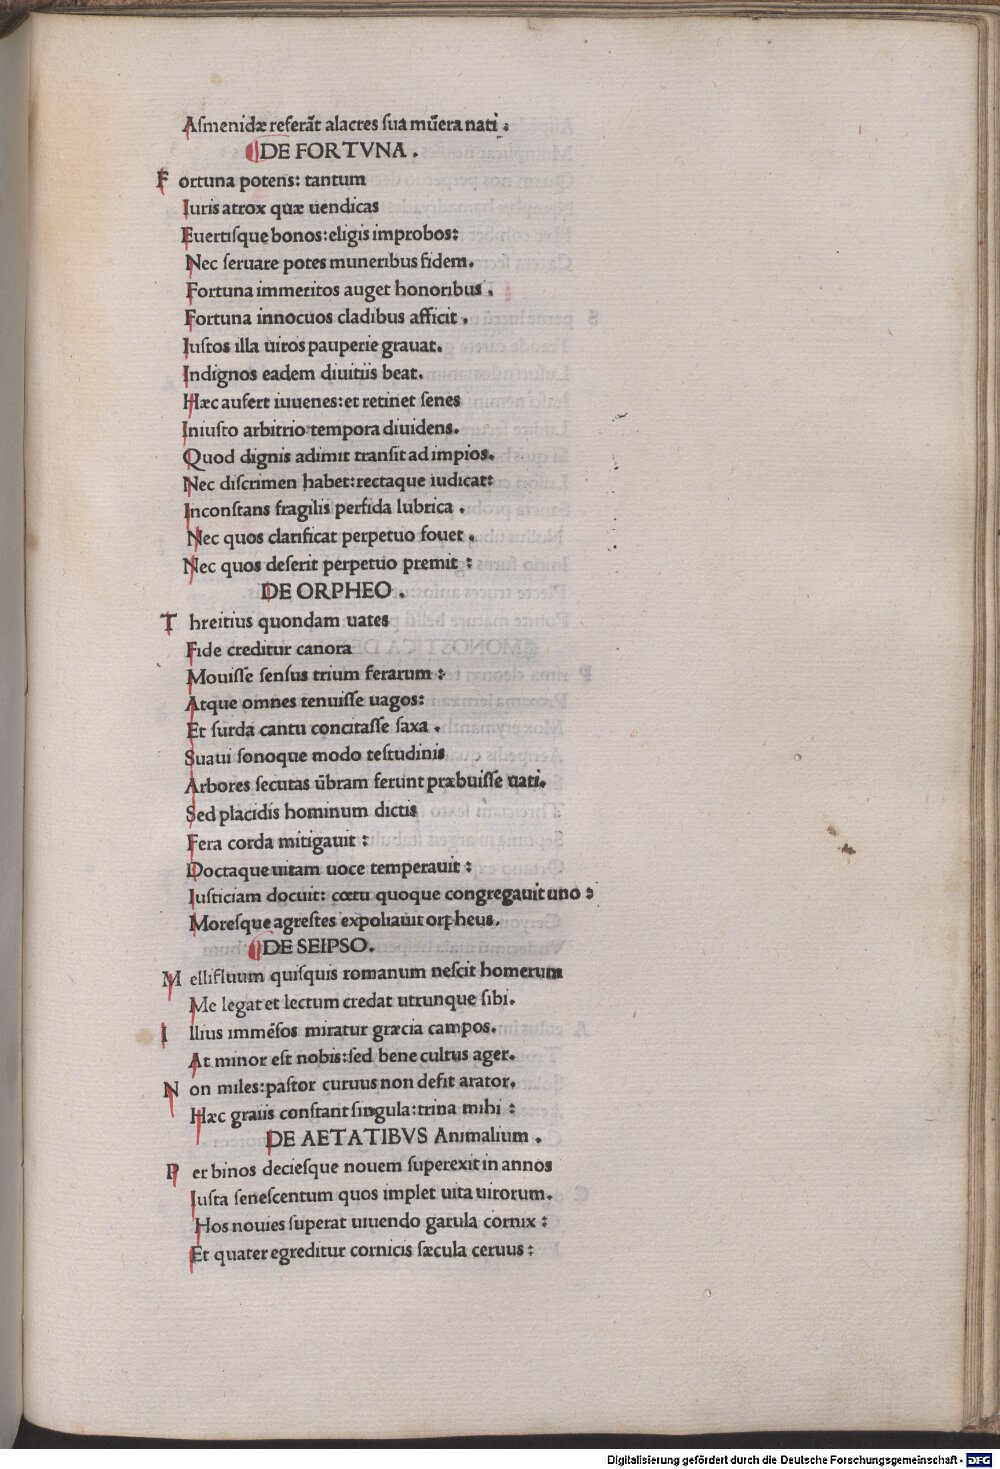 Aſmenidæ referāt alacres ſua mūera nati :
DE FORTVNA .
F ortuna potens: tantum
Iuris atrox quæ uendicas
Euertiſque bonos: eligis improbos:
Nec ſeruare potes muneribus fidem.
Fortuna immeritos auget honoribus .
Fortuna innocuos cladibus afficit .
Iuſtos illa uiros pauperie grauat.
Indignos eadem diuitiis beat.
Hæc aufert iuuenes: et retinet ſenes
Iniuſto arbitrio tempora diuidens.
Quod dignis adimit tranſit ad impios.
Nec diſcrimen habet: rectaque iudicat:
Inconſtans fragilis perfida lubrica .
Nec quos clarificat perpetuo fouet .
Nec quos deſerit perpetuo premit :
DE ORPHEO .
T hreitius quondam uates
Fide creditur canora
Mouiſſe ſenſus trium ferarum :
Atque omnes tenuiſſe uagos:
Et ſurda cantu concitaſſe ſaxa .
Suaui ſonoque modo teſtudinis
Arbores ſecutas ūbram ferunt præbuiſſe uati.
Sed placidis hominum dictis
Fera corda mitigauit :
Doctaque uitam uoce temperauit :
Iuſticiam docuit: cœtu quoque congregauit uno :
Moreſque agreſtes expoliauit orpheus.
DE SEIPSO.
M ellifluum quiſquis romanum neſcit homerum
Me legat et lectum credat utrunque ſibi.
I llius immēſos miratur græcia campos.
At minor eſt nobis: ſed bene cultus ager.
N on miles: paſtor curuus non defit arator.
Hæc graiis conſtant ſingula: trina mihi :
DE AETATIBVS Animalium .
P er binos decieſque nouem ſuperexit in annos
Iuſta ſeneſcentum quos implet uita uirorum.
Hos nouies ſuperat uiuendo garula cornix :
Et quater egreditur cornicis ſæcula ceruus :
Digitalisierung gefördert durch die Deutsche Forschungsgemeinschaft - DFG